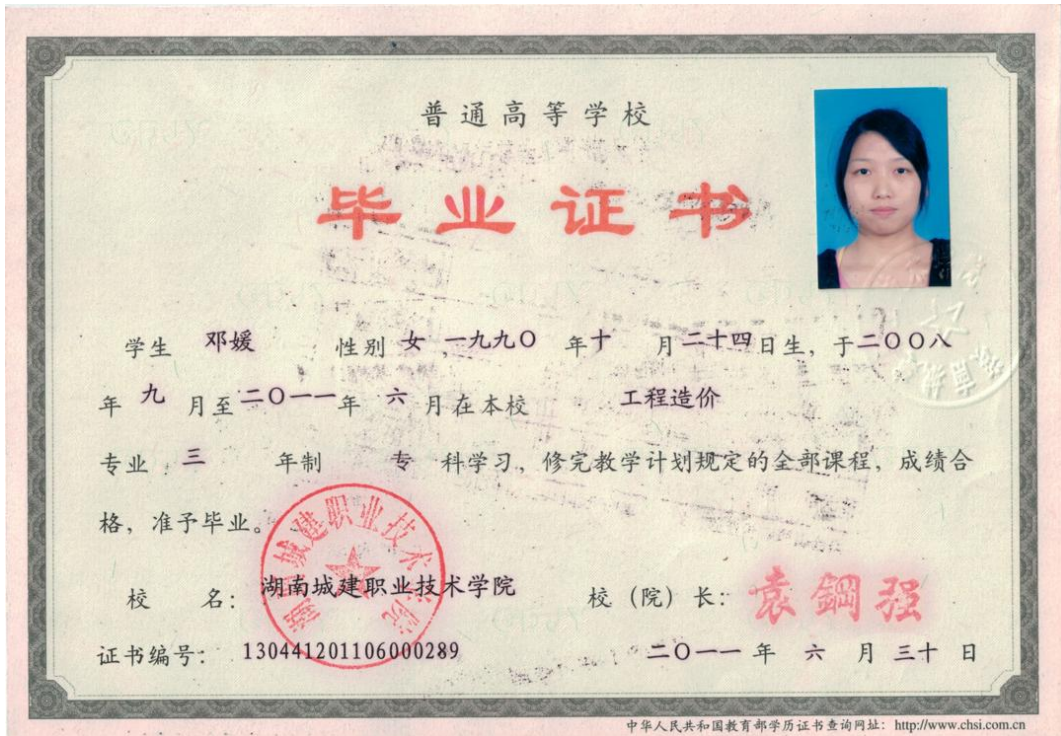 普通高等学校
毕业证书
学生 邓媛 性别 女，一九九〇 年十 月二十四日生，于二〇〇八
年 九 月至二〇一一年 六 月在本校 工程造价
专业 三 年制 专 科学习，修完教学计划规定的全部课程，成绩合
格，准予毕业。
湖南城建职业技术学院
校 名： 湖南城建职业技术学院 校（院）长： 袁鋼强
证书编号： 130441201106000289 二〇一一 年 六 月 三十 日
中华人民共和国教育部学历证书查询网址：http://www.chsi.com.cn